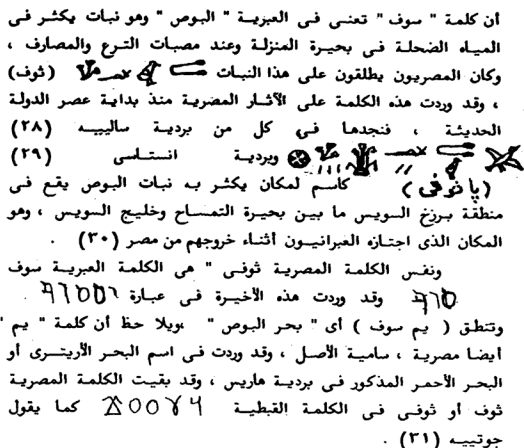 أن كلمة " سوف " تعنى فى العبرية " البوص " وهو نبات يكثر فى
المياه الضحلة فى بحيرة المنزلة وعند مصبات الترع والمصارف ،
وكان المصريون يطلقون على هذا النبات (ثوف)
، وقد وردت هذه الكلمة على الآثار المصرية منذ بداية عصر الدولة
الحديثة ، فنجدها في كل من بردية سالييه (٢٨)
وبردية انستاسى (٢٩)
(پاثوفى) كاسم لمكان يكثر به نبات البوص يقع فى
منطقة برزخ السويس ما بين بحيرة التمساح وخليج السويس ، وهو
المكان الذى اجتازه العبرانيون أثناء خروجهم من مصر (٣٠) .
ونفس الكلمة المصرية ثوفى " هى الكلمة العبرية سوف
وقد وردت هذه الأخيرة فى عبارة .
وتنطق ( يم سوف ) أى " بحر البوص " ،ويلا حظ أن كلمة " يم "
أيضا مصرية ، سامية الأصل ، وقد وردت فى اسم البحر الأريتــرى أو
البحر الأحمر المذكور فى بردية هاريس ، وقد بقيت الكلمة المصرية
ثوف أو ثوفى فى الكلمة القبطية كما يقول
جوتييه (٣١) .